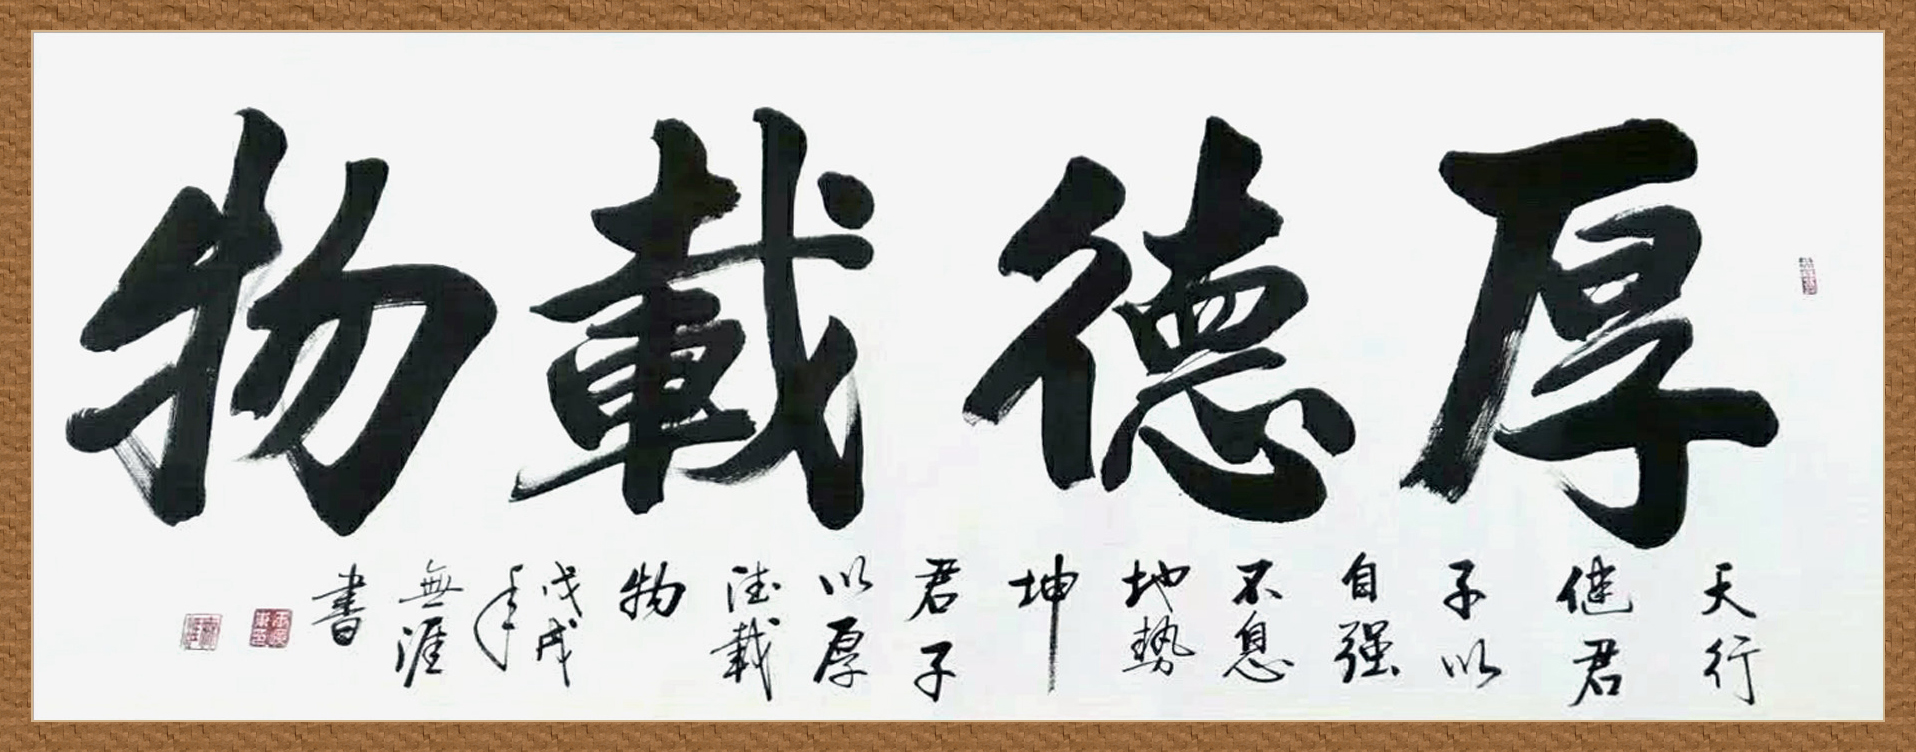 厚德載物
天行
健君
子以
自强
不息
地勢
坤
君子
以厚
德載
物
戊戌
年
無涯
書